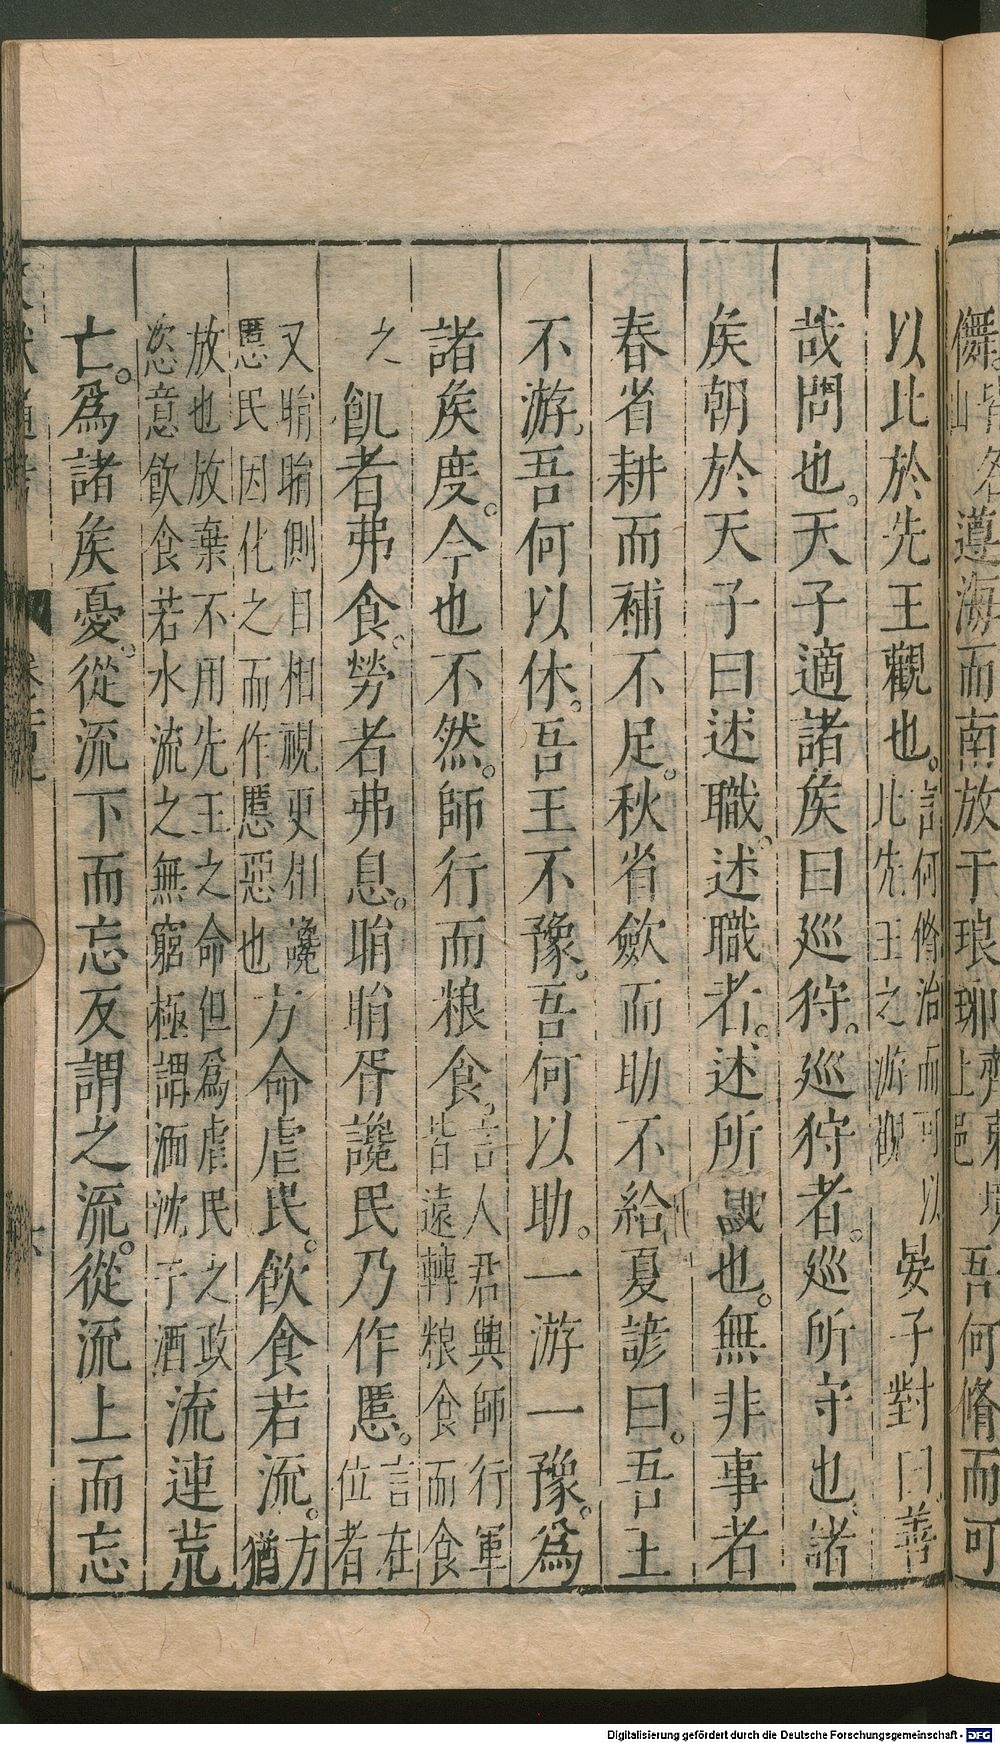 儛皆山名遵海而南放于琅邪齊東境上邑吾何脩而可
以比於先王觀也。言何脩治而可以比先王之游觀晏子對曰善
哉問也。天子適諸矦曰巡狩。巡狩者。巡所守也諸
矦朝於天子曰述職。述職者。述所職也。無非事者
春省耕而補不足。秋省斂而助不給夏諺曰。吾王
不游。吾何以休。吾王不豫。吾何以助。一游一豫。爲
諸矦度。今也不然。師行而粮食。言人君興師行軍皆遠轉粮食而食
之飢者弗食。勞者弗息。睊睊胥讒民乃作慝。言在位者
又睊睊側目相視更相讒慝民因化之而作慝惡也方命虐民。飲食若流。方猶
放也放棄不用先王之命但爲虐民之政恣意飲食若水流之無窮極謂湎沈于酒流連荒
亡。爲諸矦憂。從流下而忘反謂之流。從流上而忘
Digitalisierung gefördert durch die Deutsche Forschungsgemeinschaft - DFG